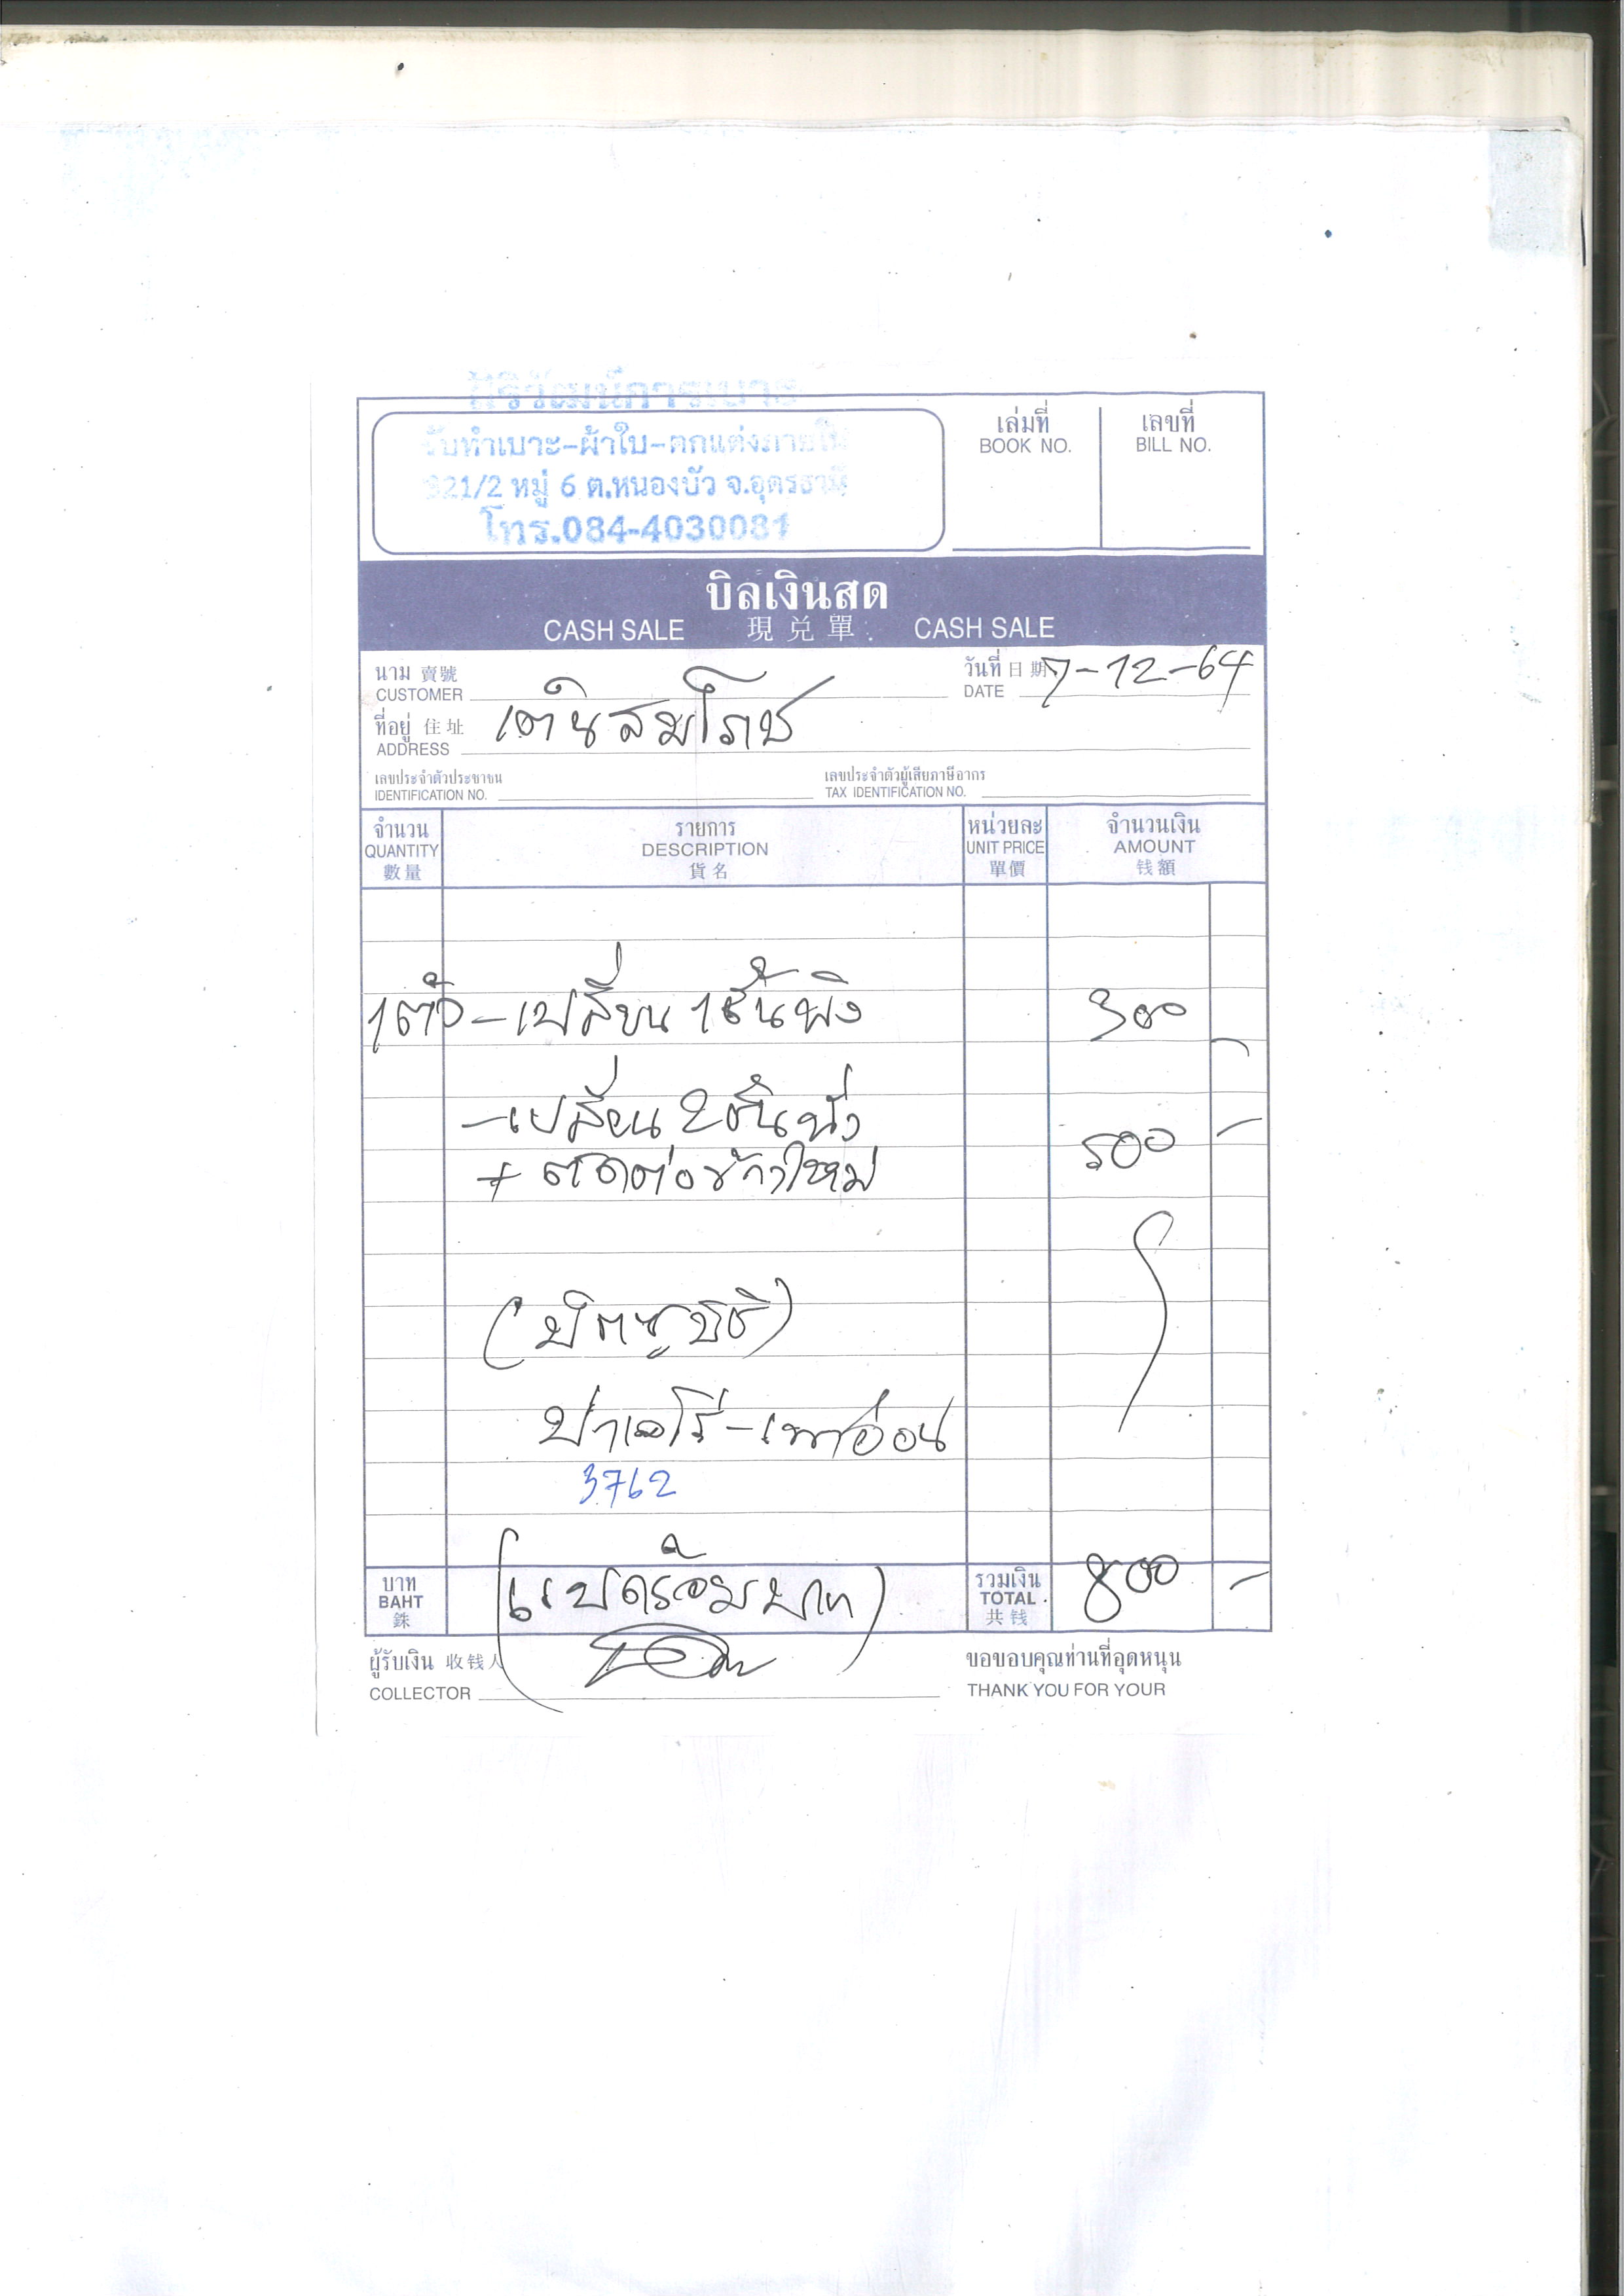 ศิริวัฒน์การเบาะ
รับทำเบาะ-ผ้าใบ-ตกแต่งภายใน
321/2 หมู่ 6 ต.หนองบัว จ.อุดรธานี
โทร.084-4030081
เล่มที่
BOOK NO.
เลขที่
BILL NO.
บิลเงินสด
CASH SALE 現兌單. CASH SALE
นาม 賣號
CUSTOMER
วันที่ 日期 7-12-64
DATE
ที่อยู่ 住址 เต็นสมโภช
ADDRESS
เลขประจำตัวประชาชน
IDENTIFICATION NO.
เลขประจำตัวผู้เสียภาษีอากร
TAX IDENTIFICATION NO.
จำนวน รายการ หน่วยละ จำนวนเงิน
QUANTITY DESCRIPTION UNIT PRICE AMOUNT
數量 貨名 單價 钱額
1ตัว -เปลี่ยน 1ชิ้นพิง 300 -
-เปลี่ยน 2ชิ้นนั่ง 500 -
+ ตัดต่อข้างใหม่
(มิตซูบิชิ)
ปาเจโร่ -เทาอ่อน
3762
บาท
BAHT
銖
(แปดร้อยบาท)
รวมเงิน
TOTAL
共钱
800 -
ผู้รับเงิน 收钱人
COLLECTOR
ขอขอบคุณท่านที่อุดหนุน
THANK YOU FOR YOUR